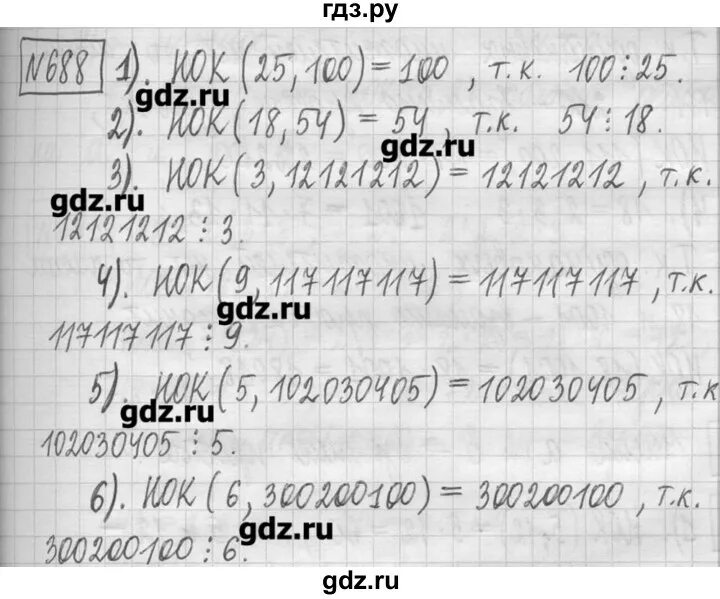 гдз.ру
№688 1). НОК (25, 100) = 100, т.к. 100 ⋮ 25.
gdz.ru
2). НОК (18, 54) = 54, т.к. 54 ⋮ 18.
gdz.ru
3). НОК (3, 12121212) = 12121212, т.к.
gdz.ru
12121212 ⋮ 3.
4). НОК (9, 117117117) = 117117117, т.к.
gdz.ru
117117117 ⋮ 9.
5). НОК (5, 102030405) = 102030405, т.к
gdz.ru
102030405 ⋮ 5.
6). НОК (6, 300200100) = 300200100, т.к.
gdz.ru
300200100 ⋮ 6.
gdz.ru